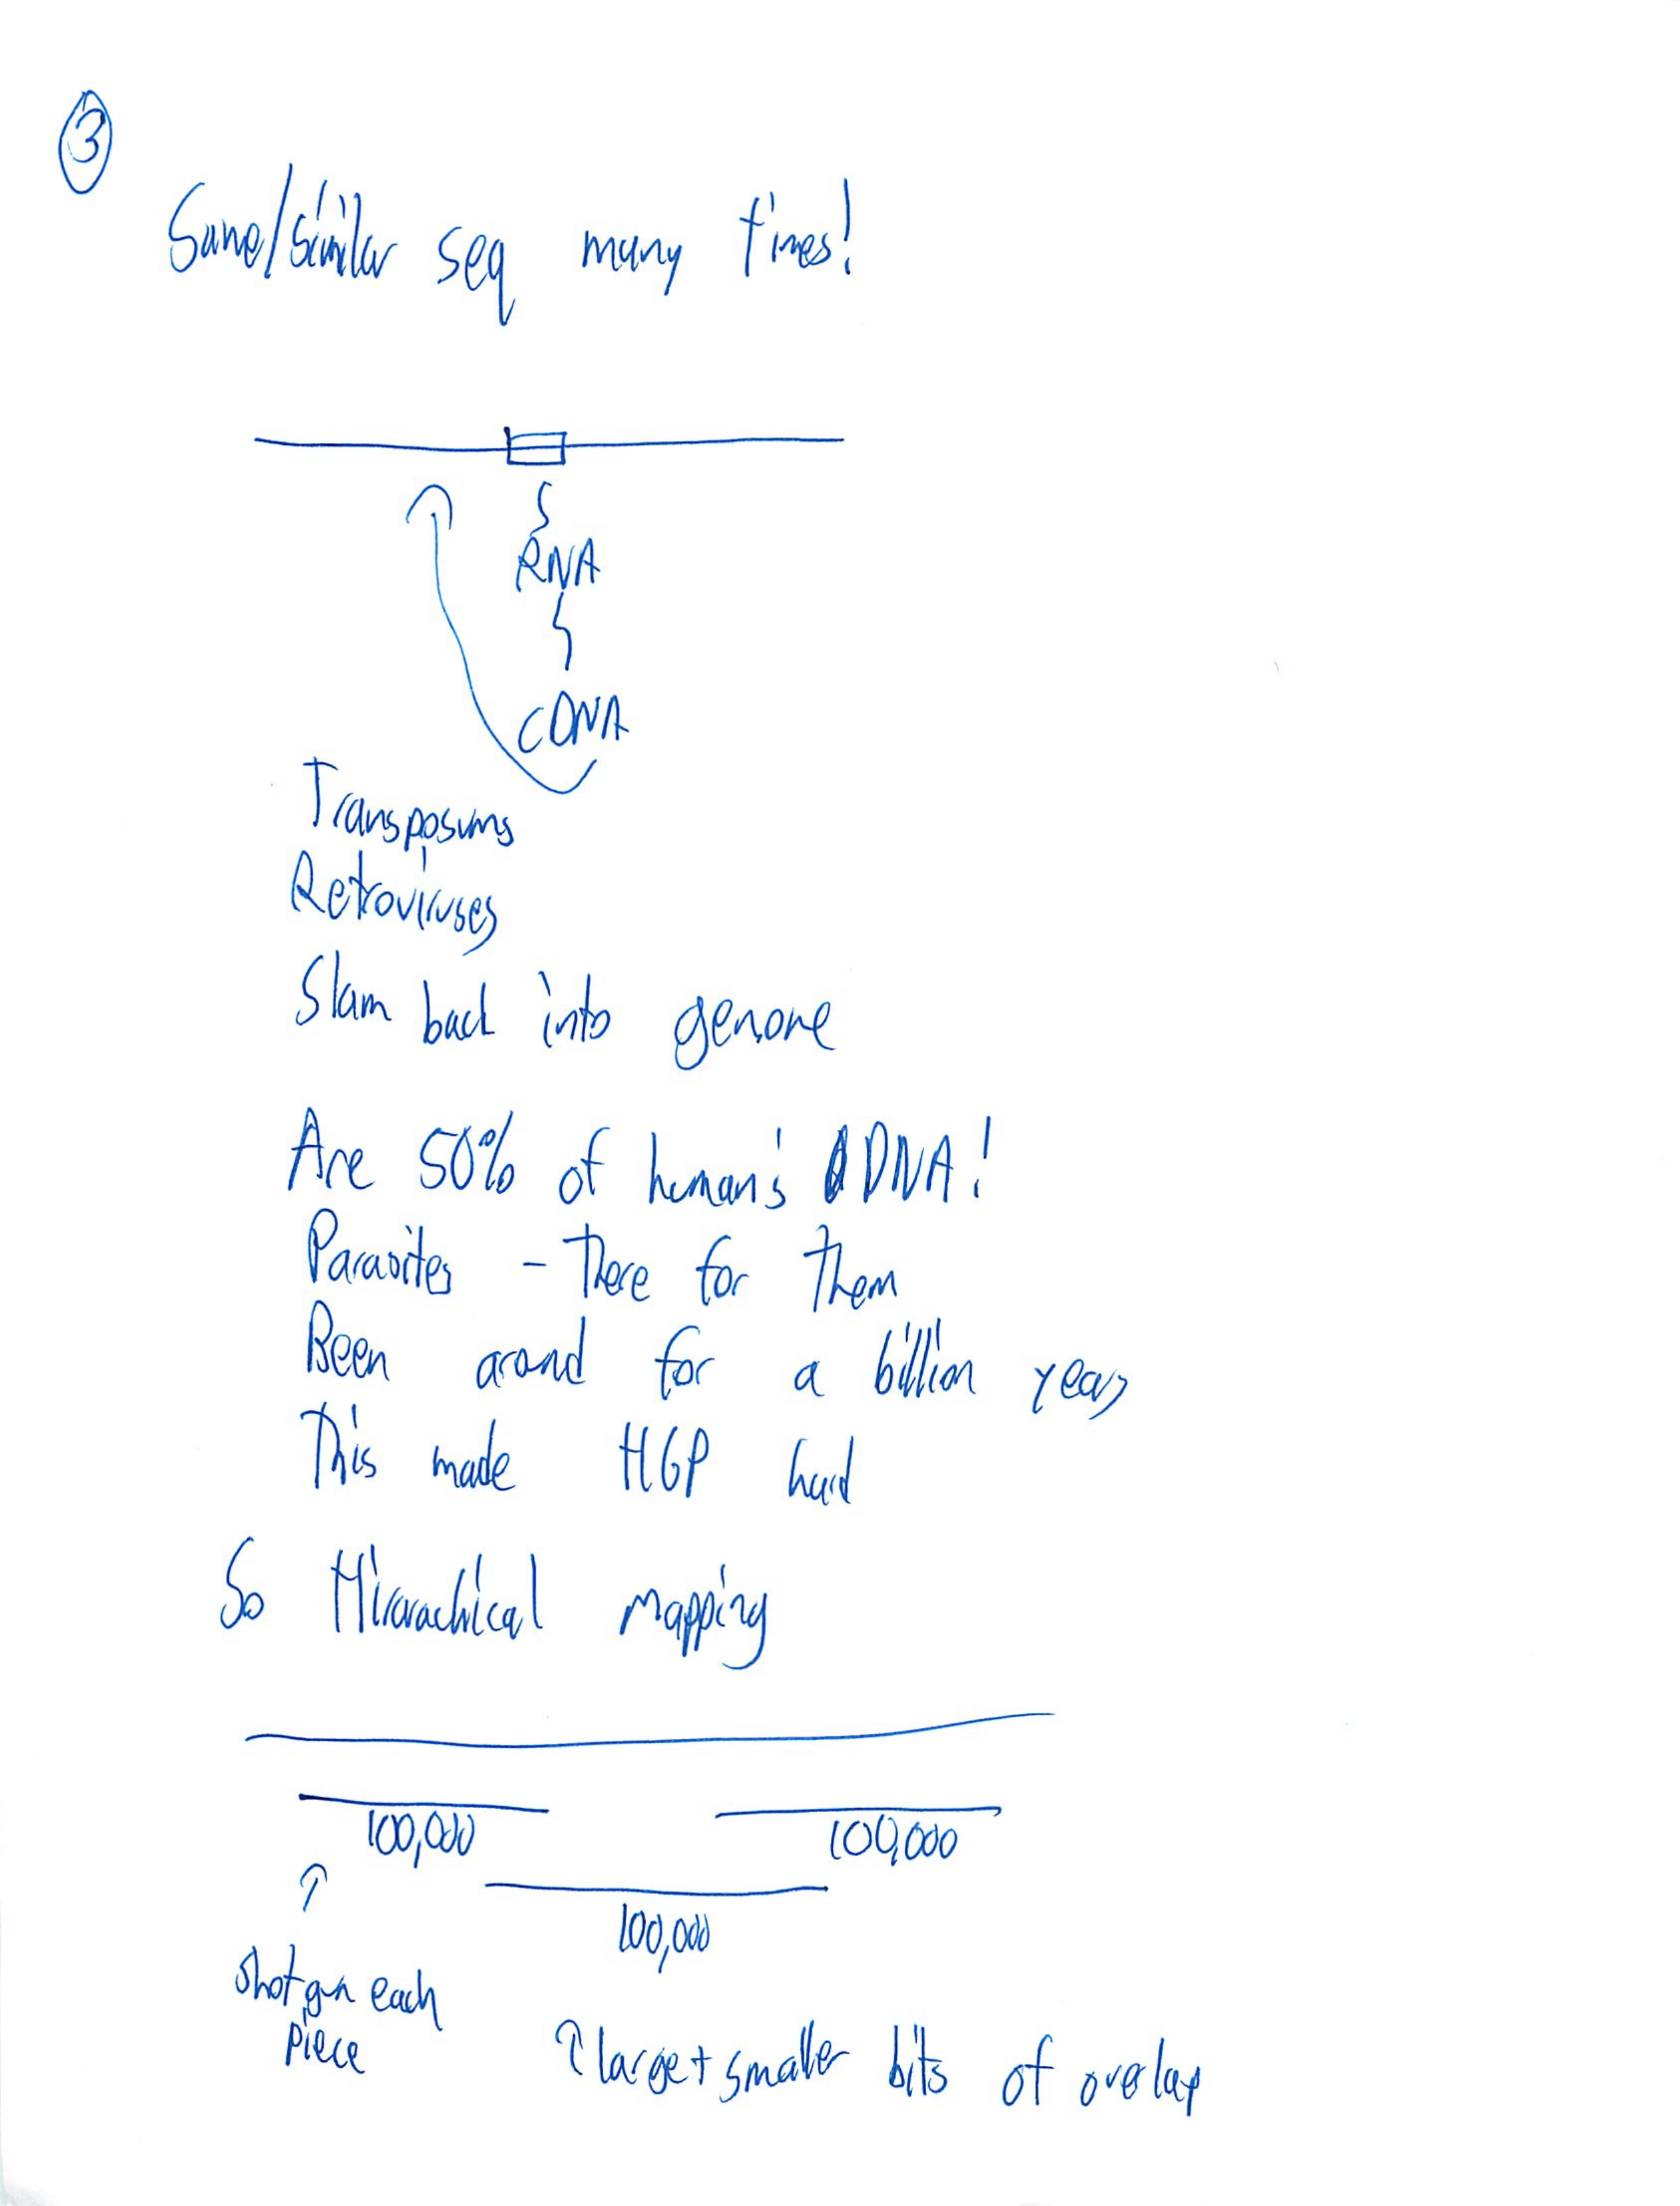 3
Same/Similar seq many times!
RNA
cDNA
Transposums
Retroviruses
Slam back into genome
Are 50% of human's DNA!
Parasites - There for them
Been around for a billion years
This made HGP hard
So Hirarachical mapping
100,000 100,000
100,000
Shotgun each
piece
↑ large + smaller bits of overlap